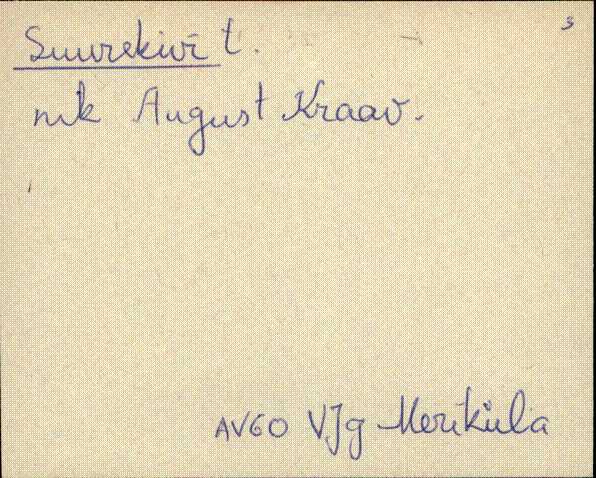 3
Suurekivi t.
nik August Kraav.
AVGO VJg Meriküla